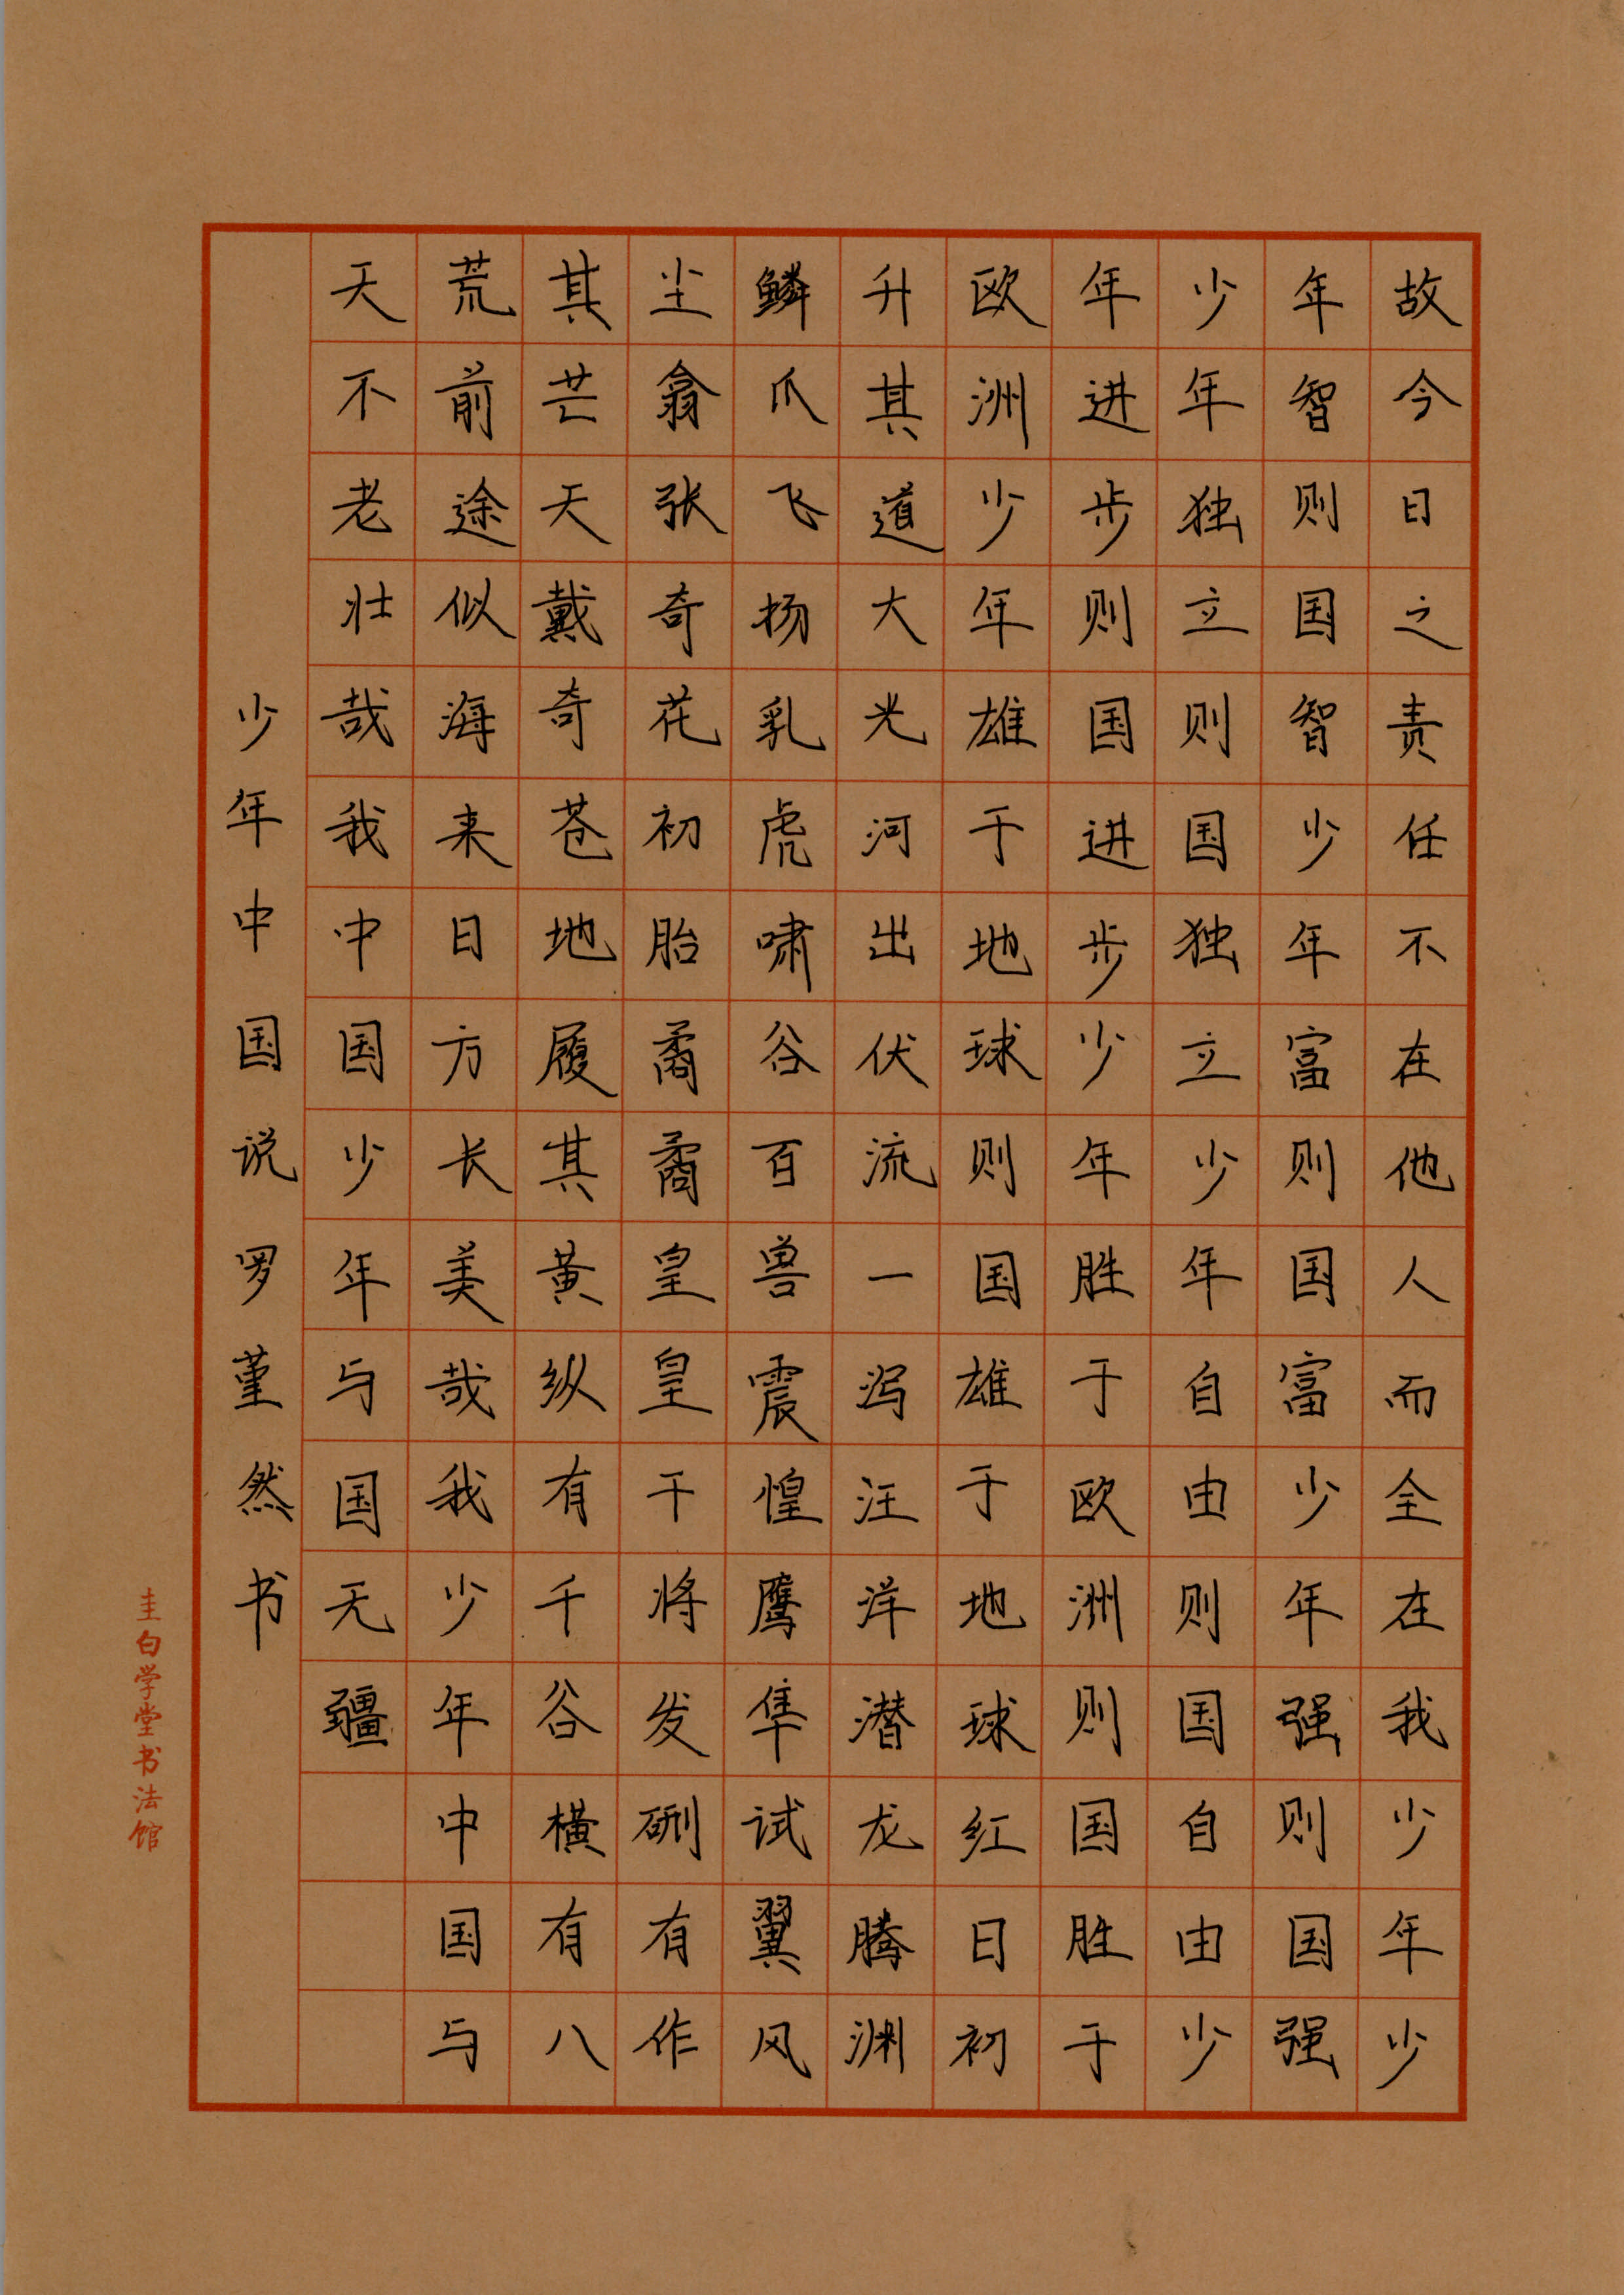 故今日之责任不在他人而全在我少年少
年智则国智少年富则国富少年强则国强
少年独立则国独立少年自由则国自由少
年进步则国进步少年胜于欧洲则国胜于
欧洲少年雄于地球则国雄于地球红日初
升其道大光河出伏流一泻汪洋潜龙腾渊
鳞爪飞扬乳虎啸谷百兽震惶鹰隼试翼风
尘翕张奇花初胎矞矞皇皇干将发硎有作
其芒天戴奇苍地履其黄纵有千谷横有八
荒前途似海来日方长美哉我少年中国与
天不老壮哉我中国少年与国无疆
少年中国说罗堇然书
圭白学堂书法馆